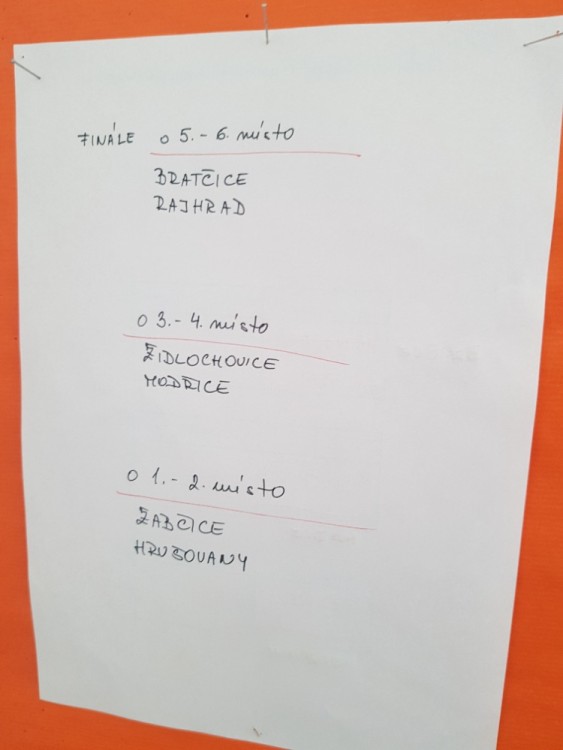 FINÁLE o 5.-6. místo
BRATČICE
RAJHRAD
o 3.-4. místo
ŽIDLOCHOVICE
MODŘICE
o 1.-2. místo
ŽABČICE
HRUŠOVANY